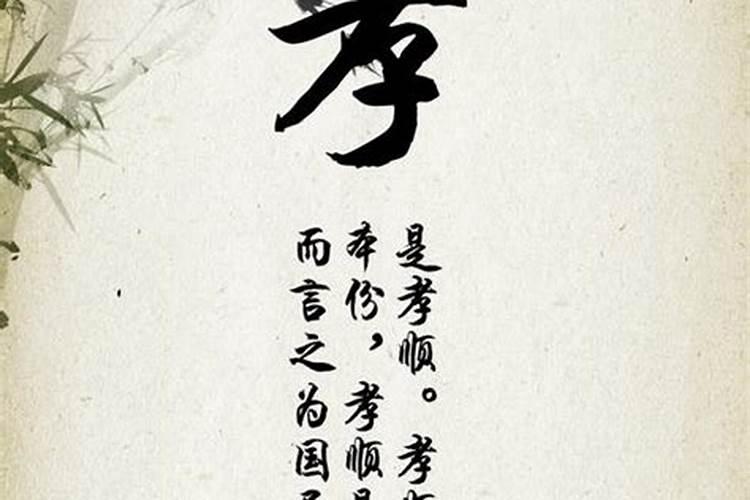 孝
是孝顺。孝
本份，孝顺
而言之为国